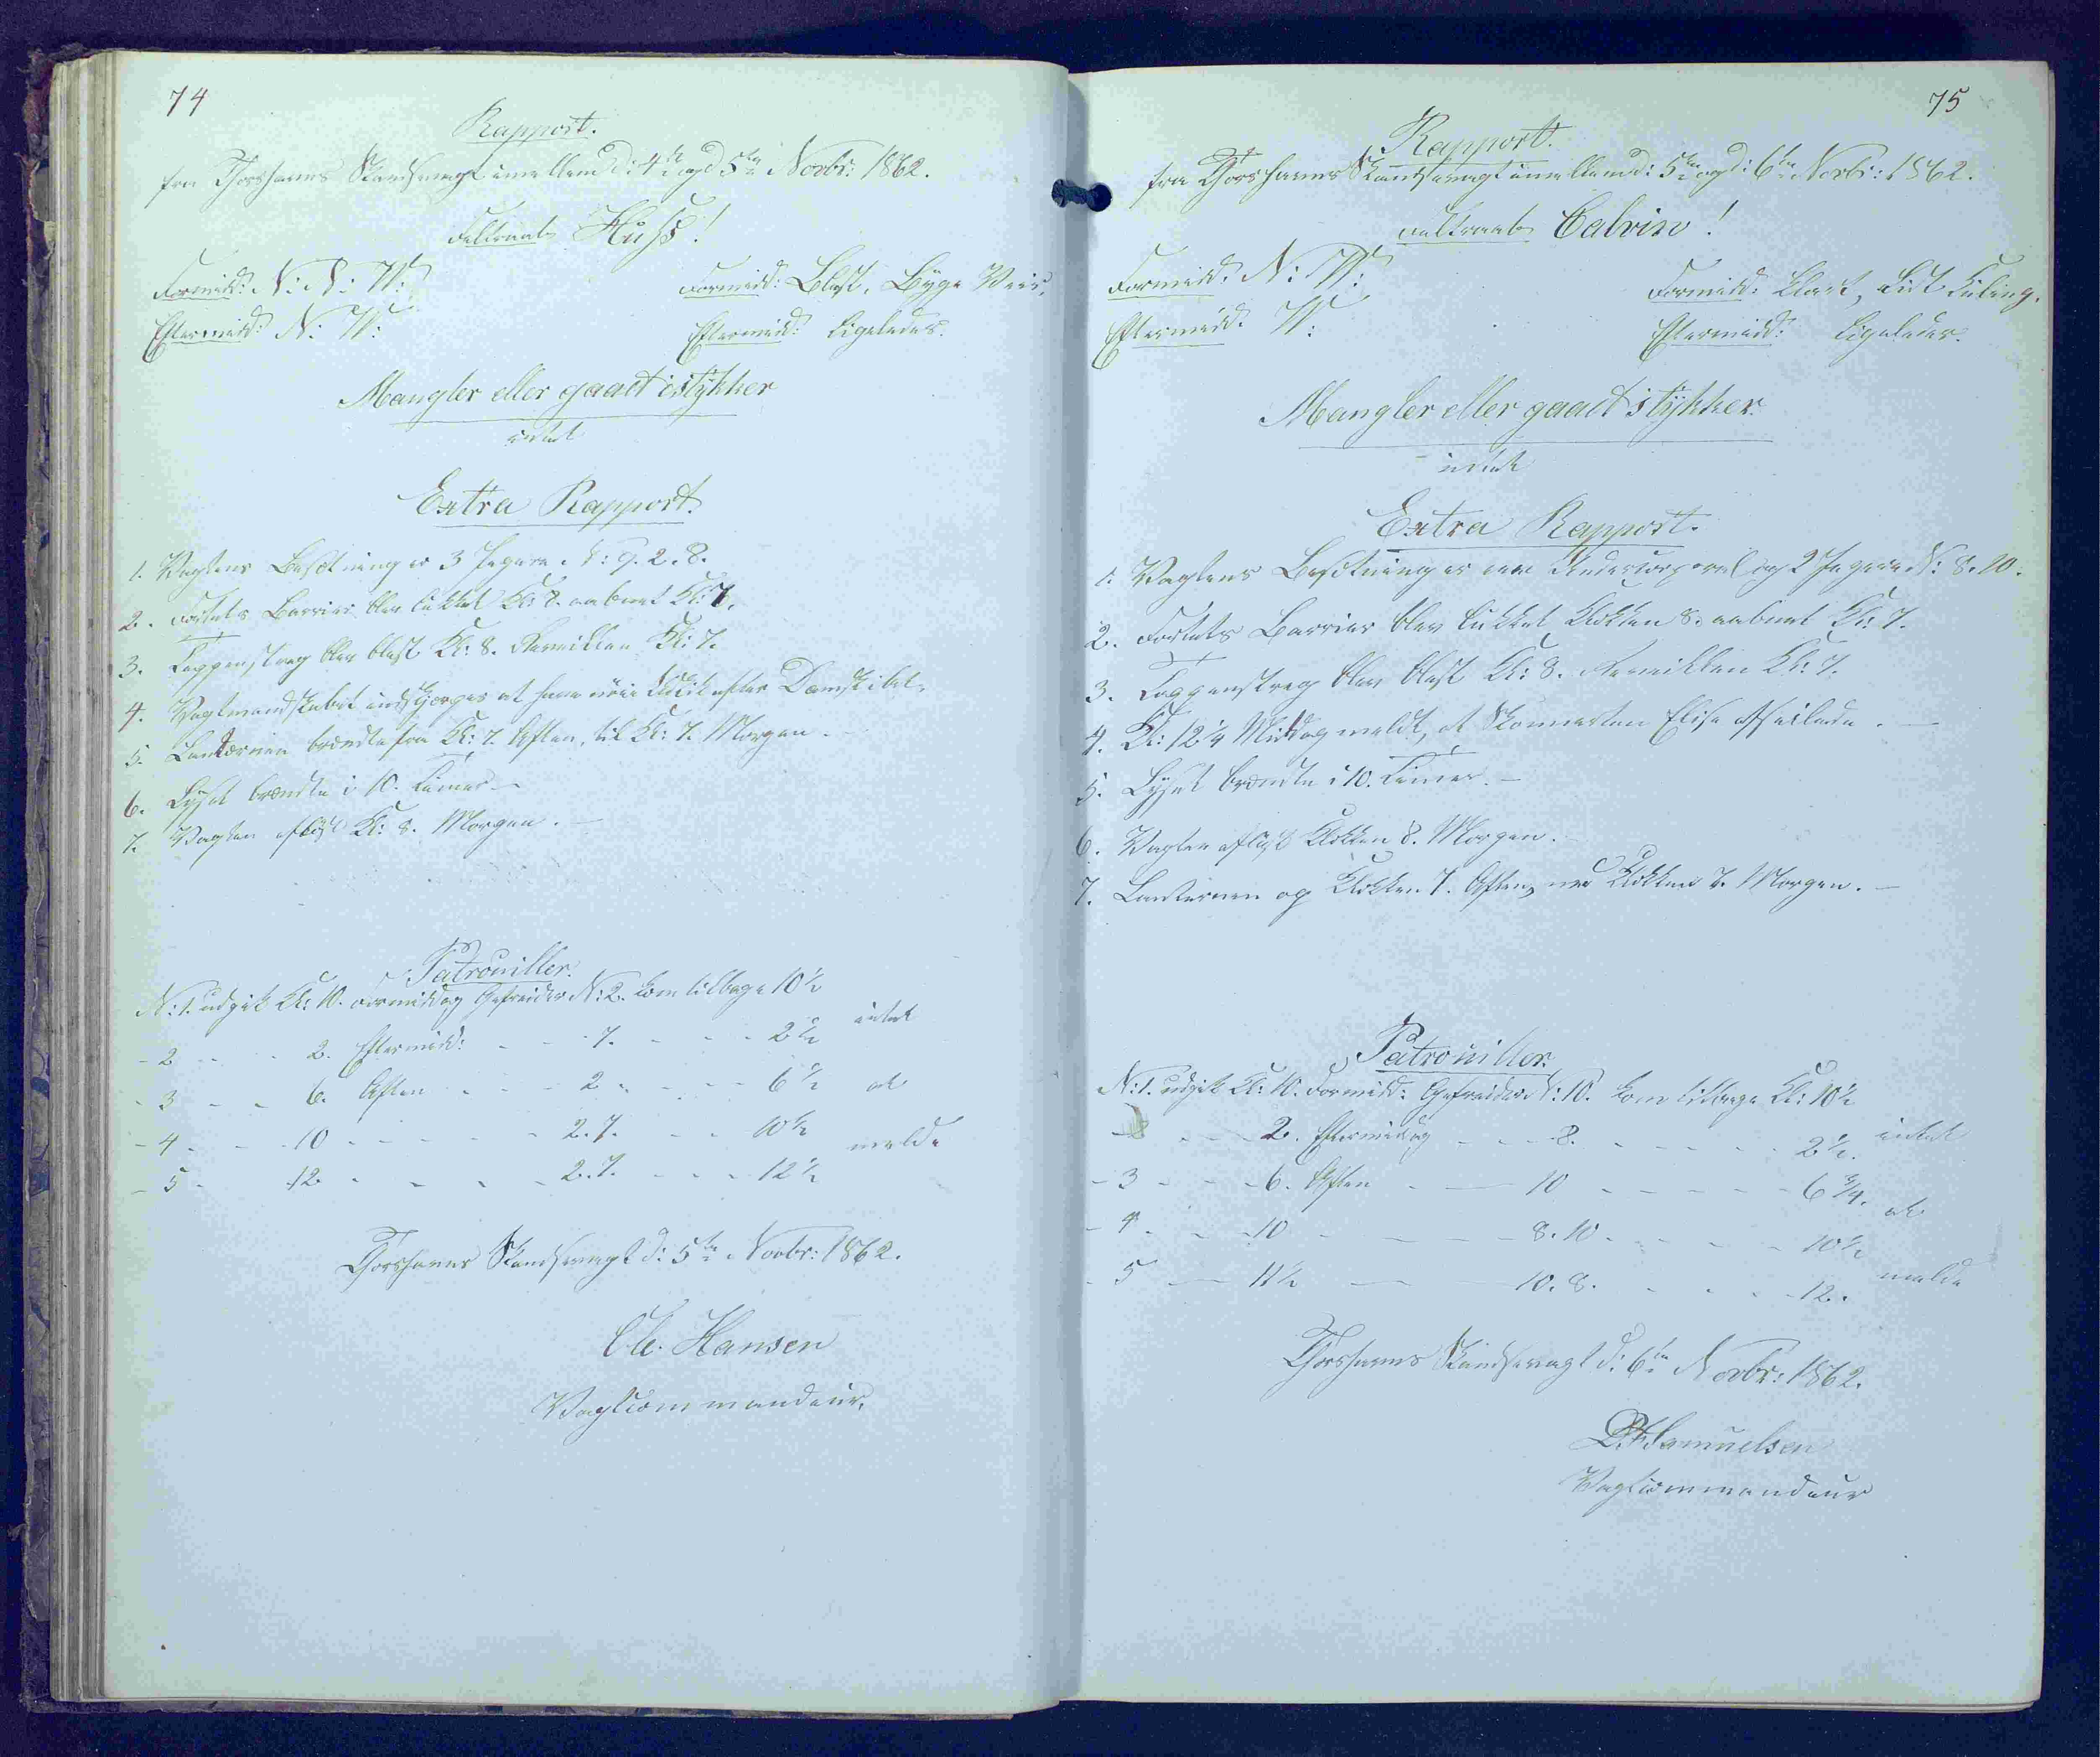 74
Rapport.
fra Thorshavns Skandsevagt imellem d: 4de og d 5te Novbr: 1862.
Feltraab Huss!
Formidd: N: N: W:
Formidd: Blæst, Byge Veir,
Eftermidd: N: W:
Eftermidd: ligeledes.
Mangler eller gaaet istykker
intet
Extra Rapport.
1. Vagtens Besætning er 3 Jægere N: 9. 2. 8.
2. Fortets Barriere blev lukket Kl: 8. aabnet Kl: 7.
3. Tappenstreg blev blæst Kl: 8. Reveillen Kl: 7.
4. Vagtmandskabet at have nöie Udkik efter Dampskibet.
5. Lanternen brændte fra Kl: 7. Aften, til Kl: 7. Morgen.
6. Lyset brændte i 10. Timer. –
7. Vagten aflöst Kl: 8. Morgen. –
Patrouiller.
N: 1. udgik Kl: 10. Formiddag Gefreider N: 2. kom tilbage 10½
- 2 - - - 2. Eftermidd: - - - 7. - - - - 2½ intet
- 3 - - - 6. Aften - - - 2 - - - - 6½ at
- 4 - - - 10 - - - - - - 2. 7. - - - 10½ melde
- 5 - 12 - - - - - 2. 7. - - - 12½
Thorshavns Skandsevagt d: 5te Novbr: 1862.
Ole. Hansen
Vagtcommandeur.
75
Rapport.
fra Thorshavns Skandsevagt imellem d: 5te og d: 6te Novbr: 1862.
Feltraab Calvin!
Formidd: N: W:
Formidd: Klart, lidt Kuling.
Eftermidd: W:
Eftermidd: ligeledes.
Mangler eller gaaet istykker.
intet
Extra Rapport.
1. Vagtens Besætning er en Undercorporal og 2 Jægere N: 8. 10.
2. Fortets Barriere blev lukket Klokken 8. aabnet Kl: 7.
3. Tappenstreg blev blæst Kl: 8. Reveillen Kl: 7.
4. Kl: 12¼ Middag meldt, at Skonnerten Elise afseilede. –
5. Lyset brændte i 10. Timer. –
6. Vagten aflöst Klokken 8. Morgen.
7. Lanternen op Klokken 7. Aften, ned Klokken 7. Morgen. –
Patrouiller.
N: 1. udgik Kl: 10. Formidd: Gefreider N: 10. kom tilbage Kl: 10½
- 2 - - - 2. Eftermiddag - - - 8. - - - - - 2½. intet
- 3 - - - 6. Aften - - 10 - - - - - 6¾. at
- 4. - - 10 - - - - 8. 10 - - - - 10½ melde
- 5 - 11½ - - 10. 8. - - - - 12.
Thorshavns Skandsevagt d: 6te Novbr: 1862.
Samuelsen
Vagtcommandeur